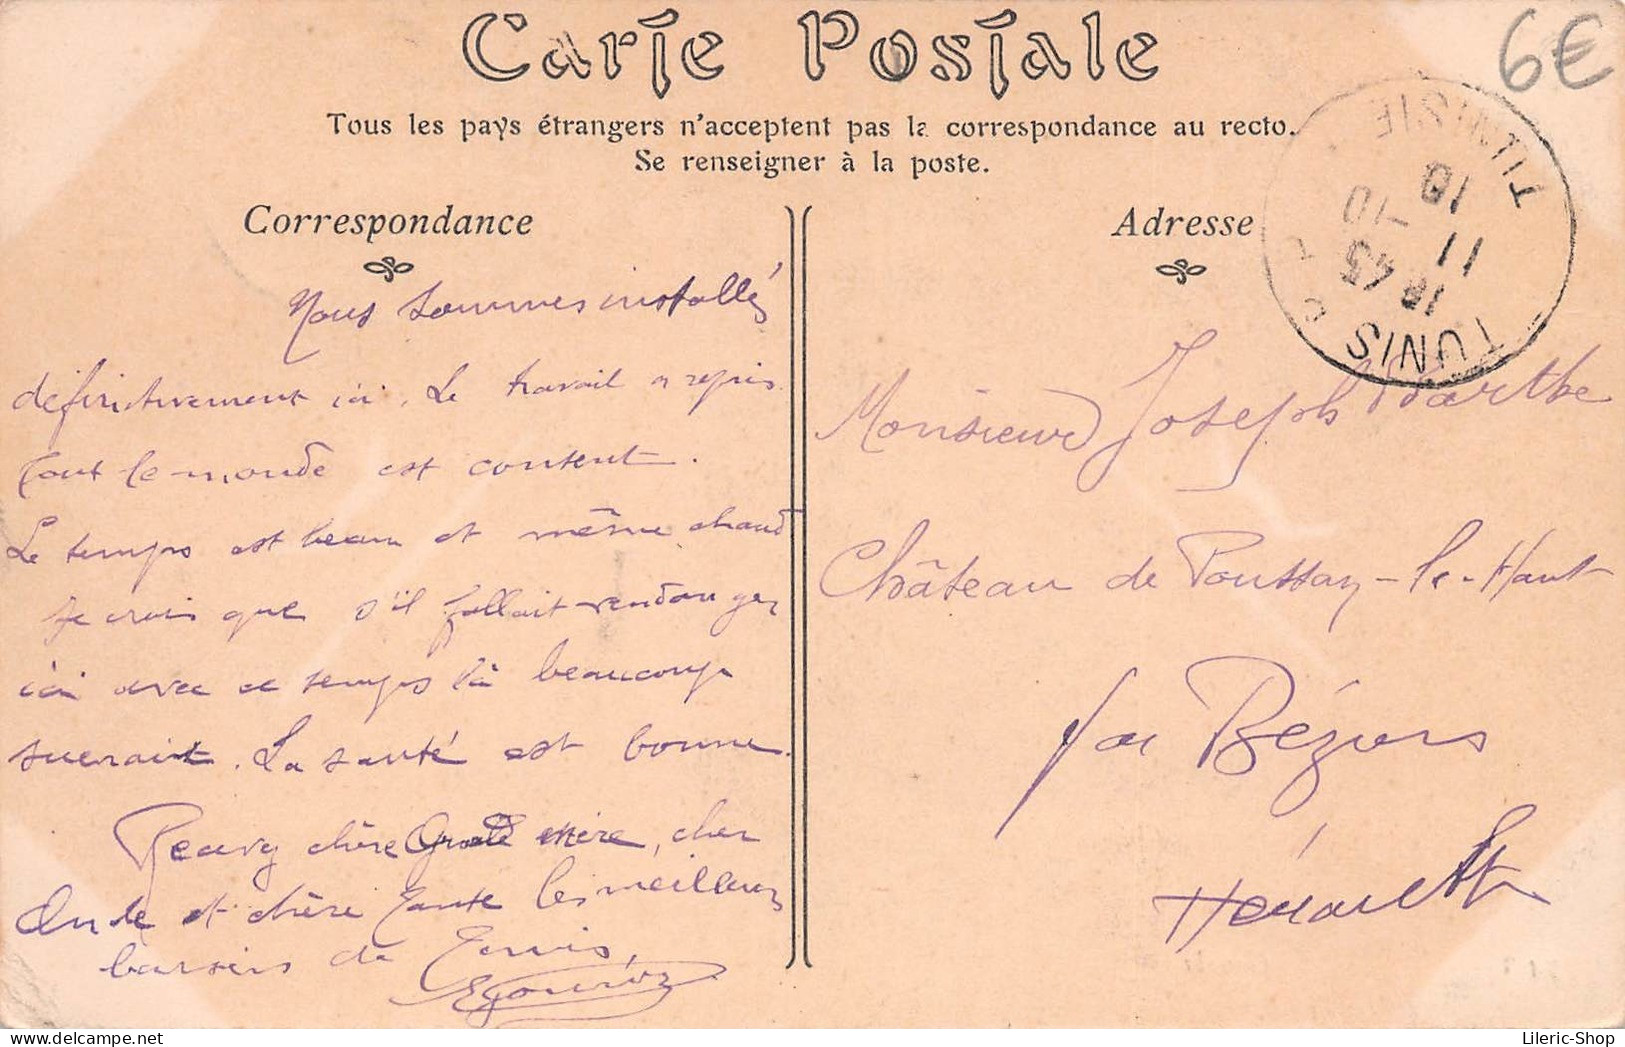 Carte Postale
6€
Tous les pays étrangers n'acceptent pas la correspondance au recto.
Se renseigner à la poste.
Correspondance
Nous sommes installés
définitivement ici. Le travail a repris
tout le monde est content.
Le temps est beau et même chaud
Je crois que s'il fallait vendanger
ici avec ce temps là beaucoup
sueraient. La santé est bonne.
chère Grand mère, cher
Oncle et chère Tante les meilleurs
baisers de Tunis,
Adresse
TUNISIE
TUNIS
18 45
11 -10
10
Monsieur Joseph Barthe
Château de Poussan-le-Haut
par Béziers
Hérault
Lileric-Shop